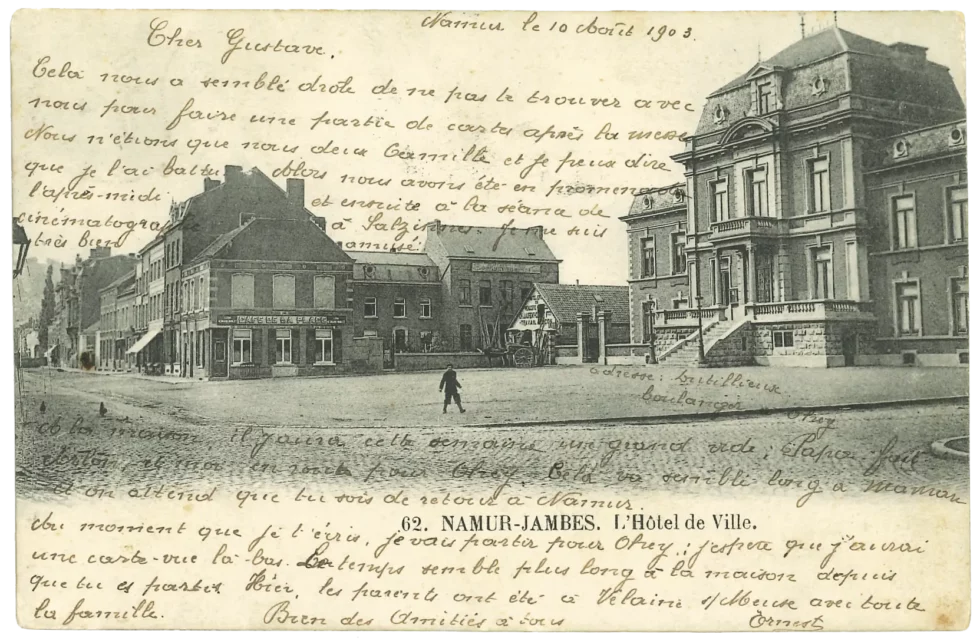 Namur le 10 Août 1903.
Cher Gustave,
Cela nous a semblé drôle de ne pas te trouver avec
nous pour faire une partie de cartes après la messe
Nous n'étions que nous deux Camille et je peux dire
que je l'ai battu alors nous avons été en promenade
l'après-midi et ensuite à la séance de
cinématographe à Salzinnes. Je me suis
très bien amusé.
CAFÉ DE LA PLACE
adresse: butillieux
boulanger
Ohey
A la maison, il y aura cette semaine un grand vide; Papa fait
et moi en route pour Ohey; Cela va semblé long à maman
et on attend que tu sois de retour à Namur.
62. NAMUR-JAMBES. L'Hôtel de Ville.
du moment que je t'écris, je vais partir pour Ohey; j'espère que j'aurai
une carte-vue là-bas. Le temps semble plus long à la maison depuis
que tu es partis. Hier, les parents ont été à Vélaine s/Meuse avec toute
la famille. Bien des Amitiés à tous Ernest